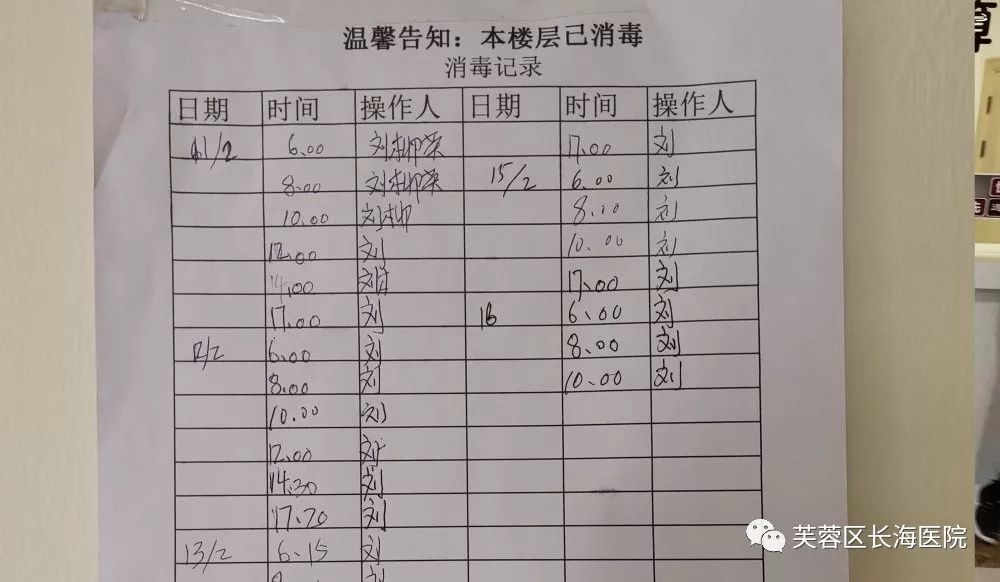 温馨告知：本楼层已消毒
消毒记录
日期 时间 操作人 日期 时间 操作人
11/2 6.00 刘 17.00 刘
8.00 刘 15/2 6.00 刘
10.00 刘 8.00 刘
12.00 刘 10.00 刘
14.00 刘 17.00 刘
17.00 刘 16 6.00 刘
12/2 6.00 刘 8.00 刘
8.00 刘 10.00 刘
10.00 刘
12.00 刘
14.30 刘
17.20 刘
13/2 6.15 刘
刘
算
芙蓉区长海医院